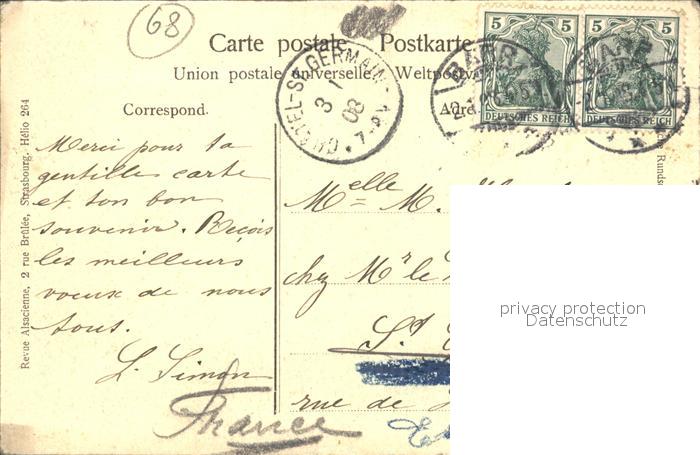 68
Carte postale. Postkarte.
Union postale universelle. Weltpostv
Correspond.
Adr
5 5 5 5
DEUTSCHES REICH DEUTSCHES REICH
BARR
BARR
CHATEL-ST. GERMAIN
3 1
08
7-8V
Revue Alsacienne, 2 rue Brûlée, Strasbourg. Hélio 264
Merci pour ta
gentille carte
et ton bon
souvenir. Reçois
les meilleurs
voeux de nous
tous.
L. Simon
France
Melle M.
chez Mr le
St
rue de
privacy protection
Datenschutz